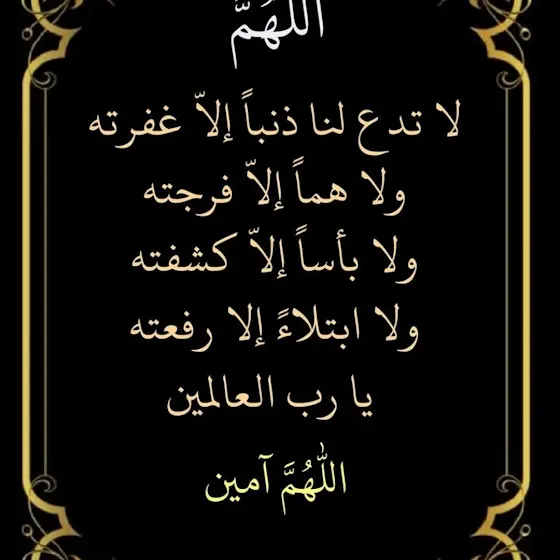 اللهُمَّ
لا تدع لنا ذنباً إلاّ غفرته
ولا هماً إلاّ فرجته
ولا بأساً إلاّ كشفته
ولا ابتلاءً إلا رفعته
يا رب العالمين
اللّٰهُمَّ آمين